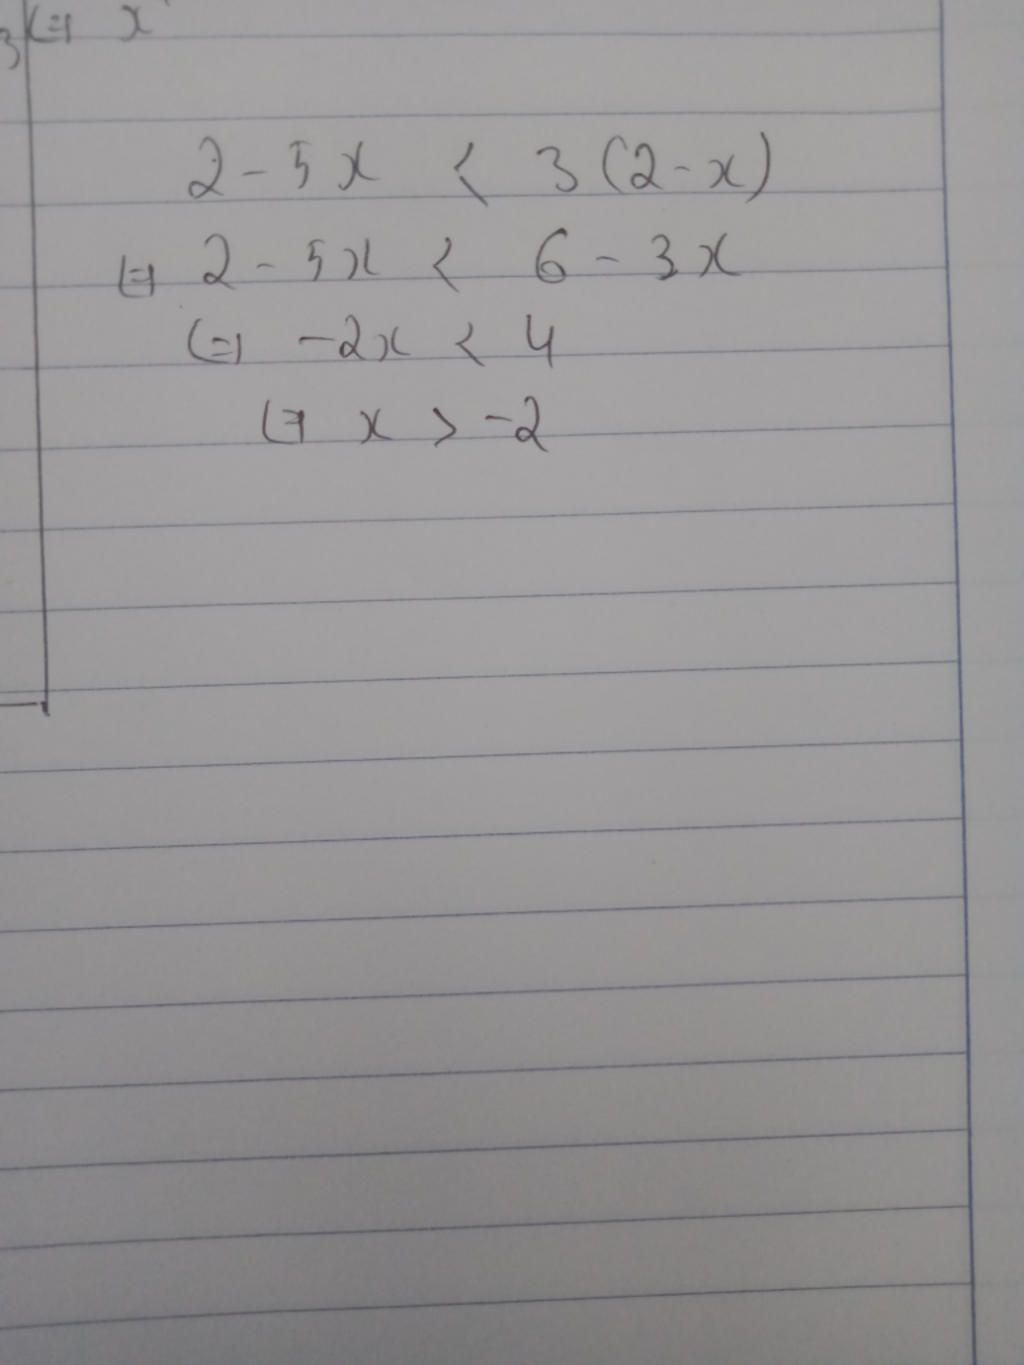 3 <=> x
2 - 5x < 3(2-x)
<=> 2 - 5x < 6 - 3x
<=> -2x < 4
<=> x > -2